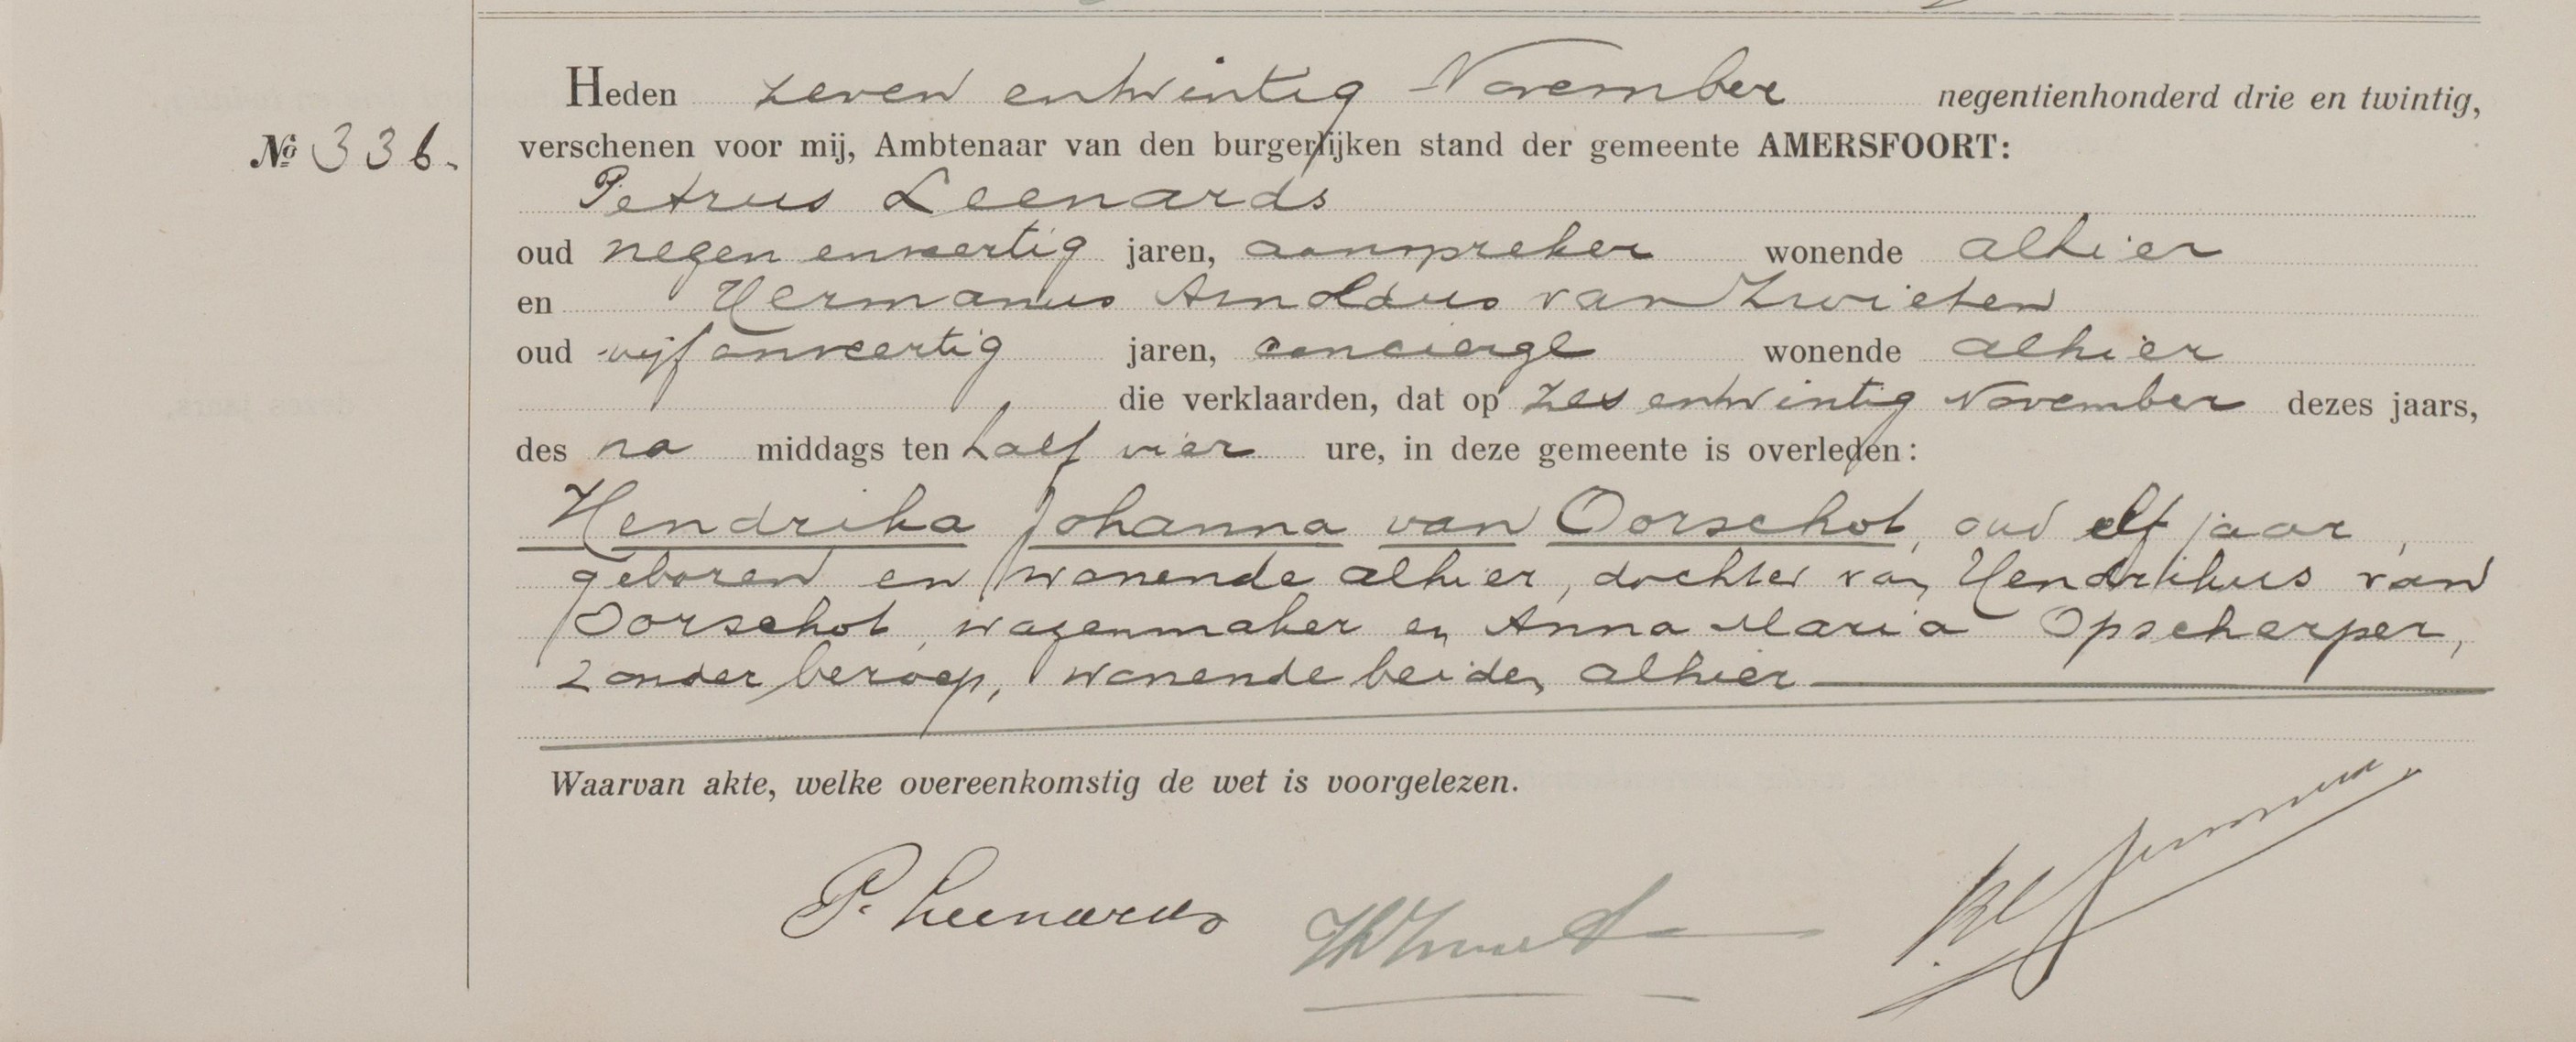 Heden zeven entwintig November negentienhonderd drie en twintig,
No 336. verschenen voor mij, Ambtenaar van den burgerlijken stand der gemeente AMERSFOORT:
Petrus Leenards
oud negen enveertig jaren, aanspreker wonende alhier
en Hermanus Arnoldus van Zwieten
oud vijf enveertig jaren, concierge wonende alhier
die verklaarden, dat op zes entwintig November dezes jaars,
des na middags ten half vier ure, in deze gemeente is overleden:
Hendrika Johanna van Oorschot, oud elf jaar,
geboren en wonende alhier, dochter van Hendrikus van
Oorschot, wagenmaker en Anna Maria Opscherper,
zonder beroep, wonende beiden alhier
Waarvan akte, welke overeenkomstig de wet is voorgelezen.
P. Leenards